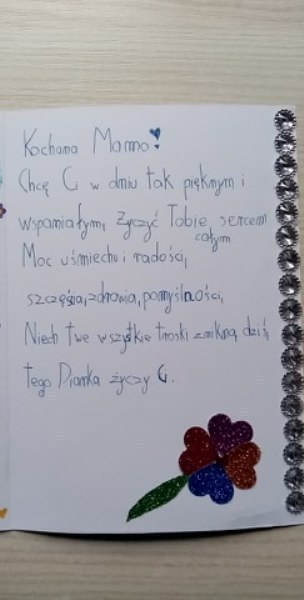 Kochana Mamo!
Chcę Ci w dniu tak pięknym i
wspaniałym, życzyć Tobie sercem
całym
Moc uśmiechu i radości,
szczęścia, zdrowia, pomyślności,
Niech twe wszystkie troski znikną dziś,
tego Dianka życzy Ci.